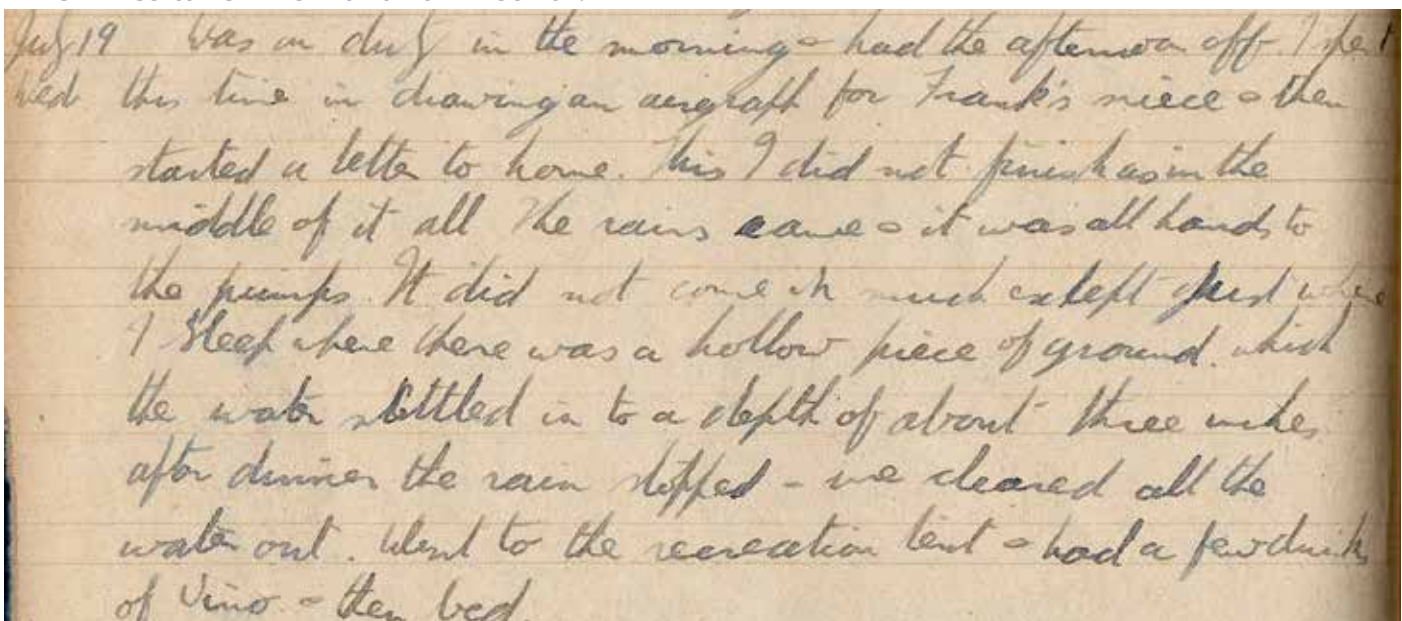 July 19 Was on duty in the morning - had the afternoon off. I spent
Wed this time in drawing an airgraph for Frank's niece - then
started a letter to home. This I did not finish as in the
middle of it all the rains came - it was all hands to
the pumps. It did not come in much except just where
I sleep where there was a hollow piece of ground. which
the water settled in to a depth of about three inches
after dinner the rain stopped - we cleared all the
water out. Went to the recreation tent - had a few drinks
of Vino - then bed.